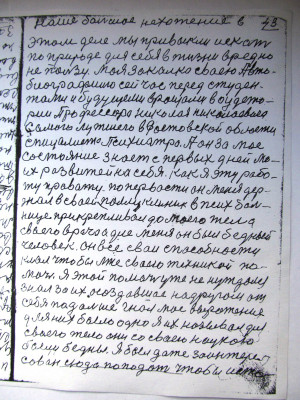 Наше большое нахотения в 43
этом деле мы привыкли искат
по природе для себя в жизни вредно
не ползу. Мая закалка своею Авто-
биографию сей час перед студен
тами и будущеми врачами в аудето-
рии Профессора николая николаевеча
Самого лутшего в Ростовской области
специалиста Психиатра. А он за мое
состояние знает с первых дней мо-
их развитей на себя. как я эту рабо-
ту провожу. по первости он меня дер-
жал в своей поликлиник в псих бол-
нице прикрепивал до моего тела
своего врача а для меня он был бедный
человек. он все сваи способности
клал чтобы мне своею техникой по-
моч. Я этой помочи уже не нуждался
знал за их
себя подалше гнал мое выражения
для них было одно Я их называл для
своего тело они со своею наукою
были бедны. Я был даже заинтере-
сован сюда поподат чтобы